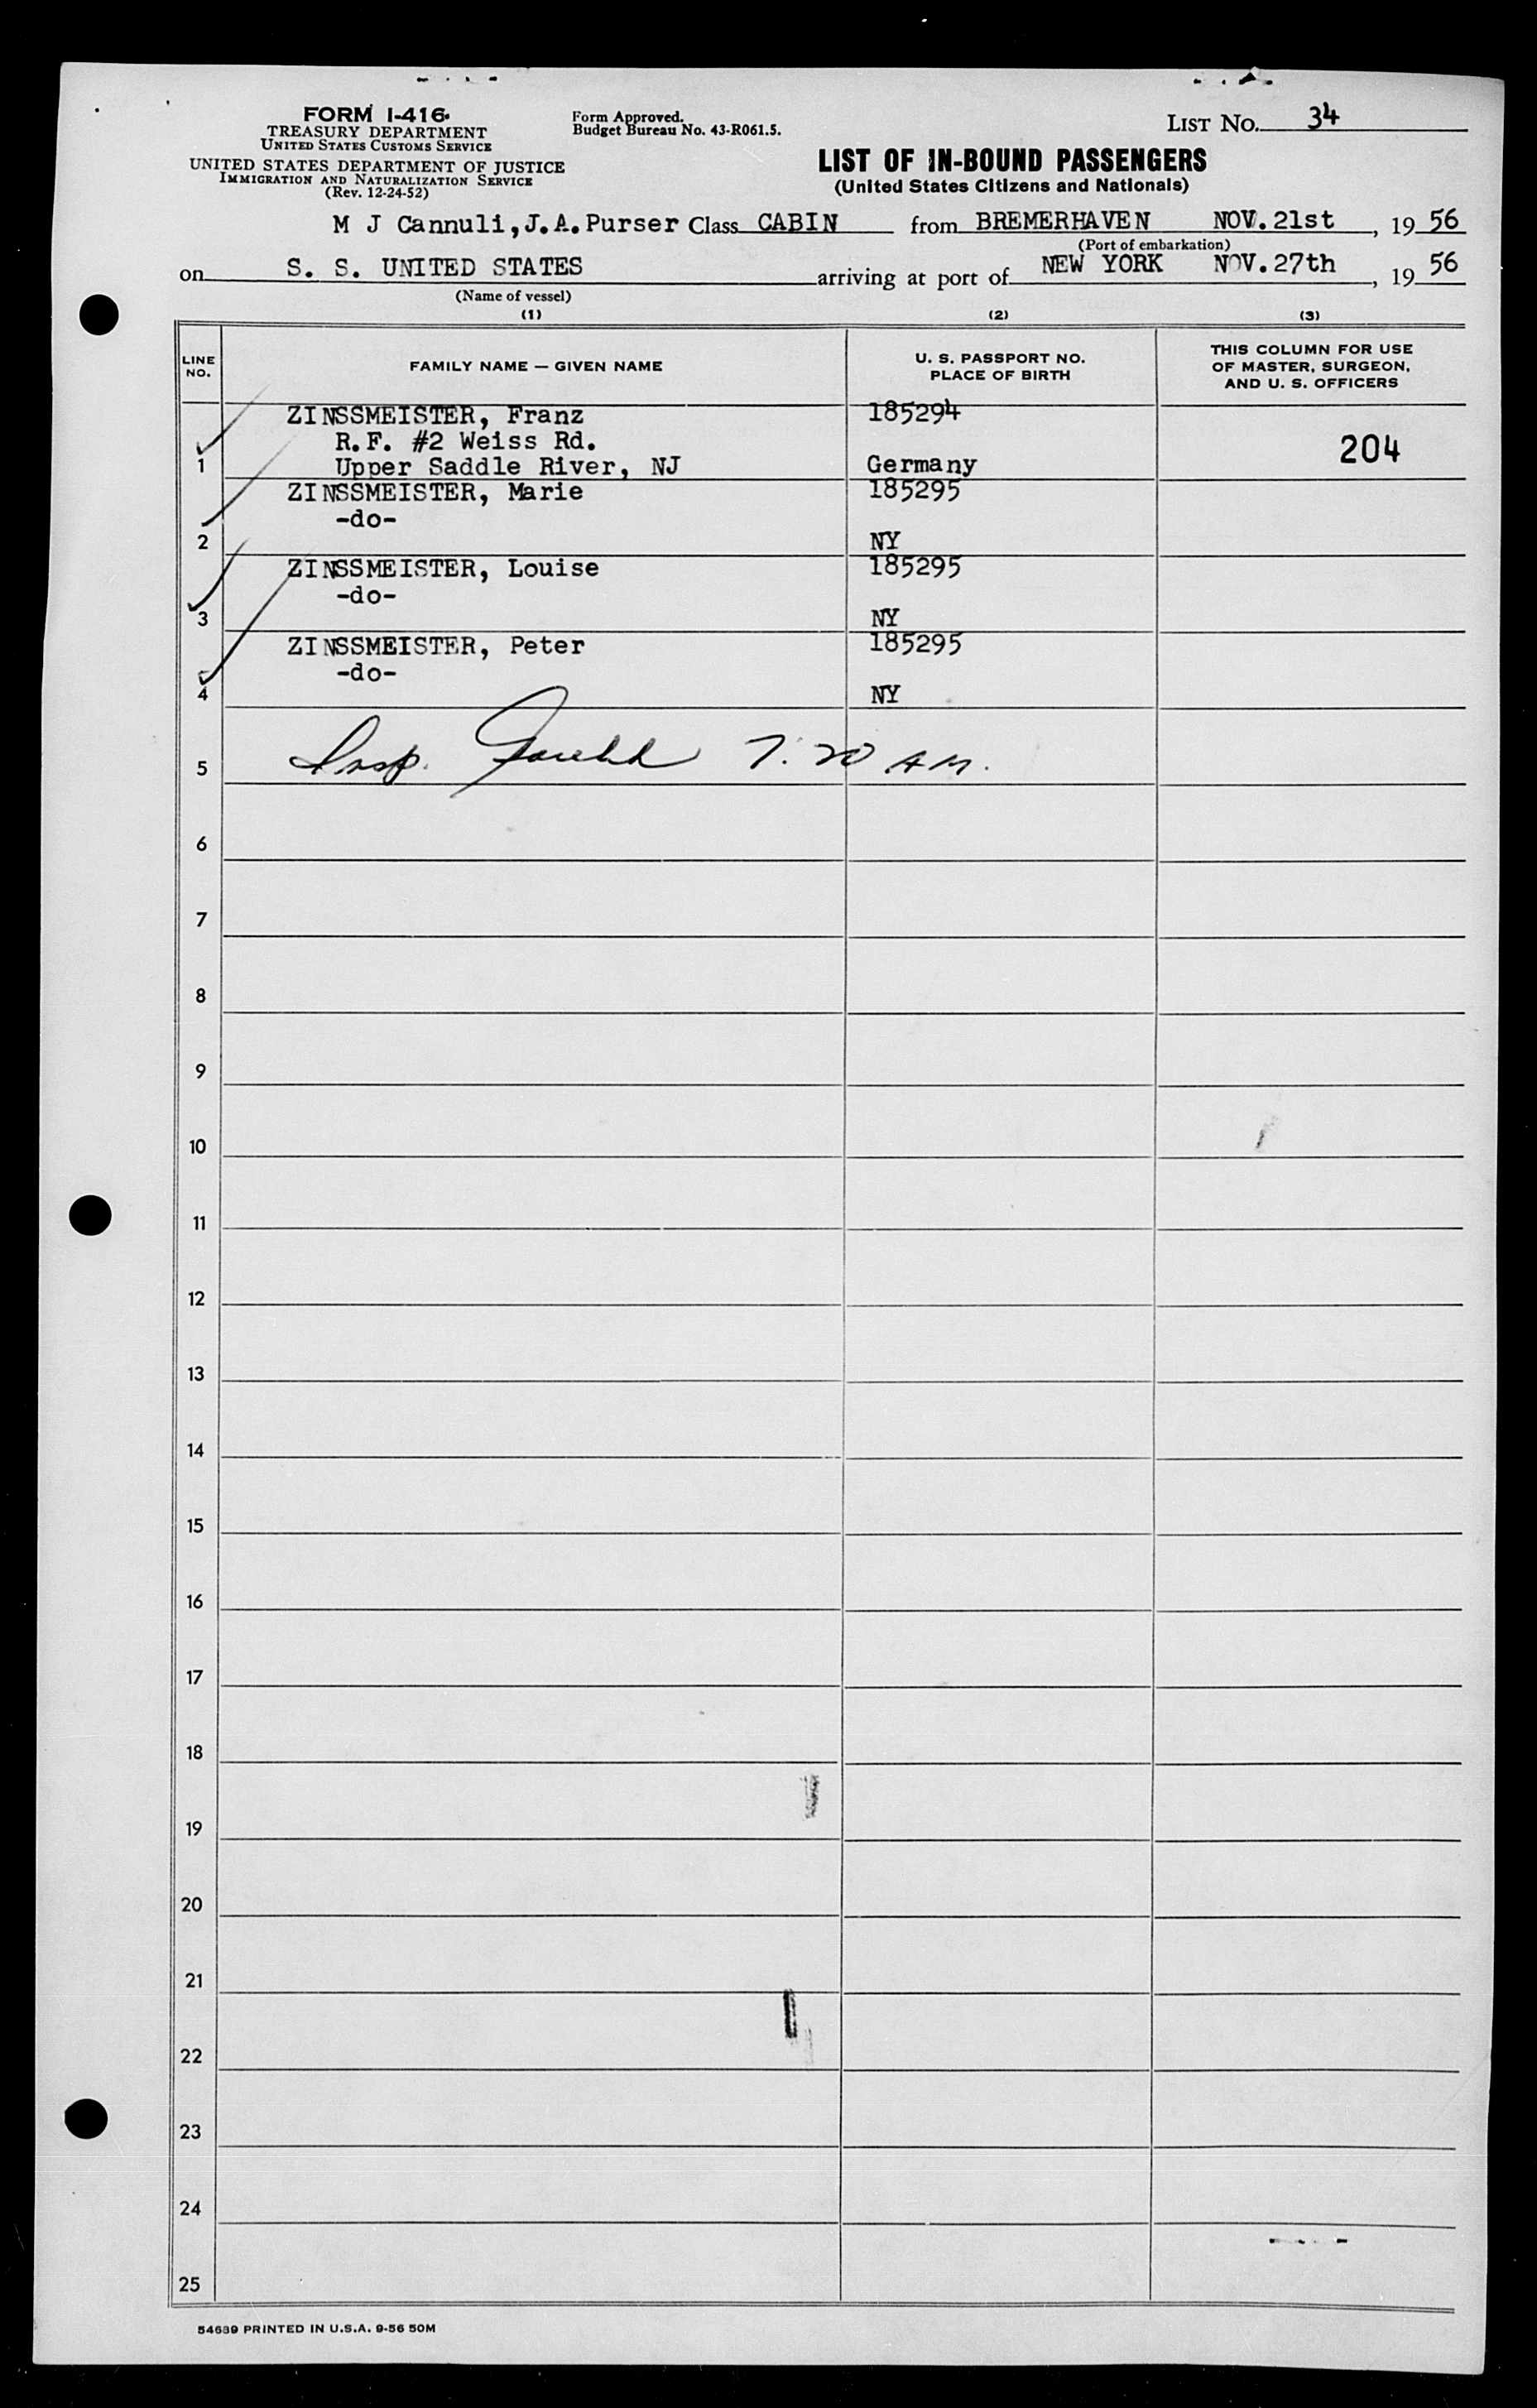 FORM I-416
TREASURY DEPARTMENT
UNITED STATES CUSTOMS SERVICE
UNITED STATES DEPARTMENT OF JUSTICE
IMMIGRATION AND NATURALIZATION SERVICE
(Rev. 12-24-52)
Form Approved.
Budget Bureau No. 43-R061.5.
LIST NO. 34
LIST OF IN-BOUND PASSENGERS
(United States Citizens and Nationals)
M J Cannuli, J.A. Purser Class CABIN from BREMERHAVEN NOV. 21st, 1956
(Port of embarkation)
on S. S. UNITED STATES arriving at port of NEW YORK NOV. 27th, 1956
(Name of vessel)
(1) (2) (3)
LINE NO. FAMILY NAME — GIVEN NAME U. S. PASSPORT NO. PLACE OF BIRTH THIS COLUMN FOR USE OF MASTER, SURGEON, AND U. S. OFFICERS
ZINSSMEISTER, Franz 185294
R.F. #2 Weiss Rd. 204
1 Upper Saddle River, NJ Germany
ZINSSMEISTER, Marie 185295
-do-
2 NY
ZINSSMEISTER, Louise 185295
-do-
3 NY
ZINSSMEISTER, Peter 185295
-do-
4 NY
5 Insp. 7:20 AM.
6
7
8
9
10
11
12
13
14
15
16
17
18
19
20
21
22
23
24
25
54689 PRINTED IN U.S.A. 9-56 50M